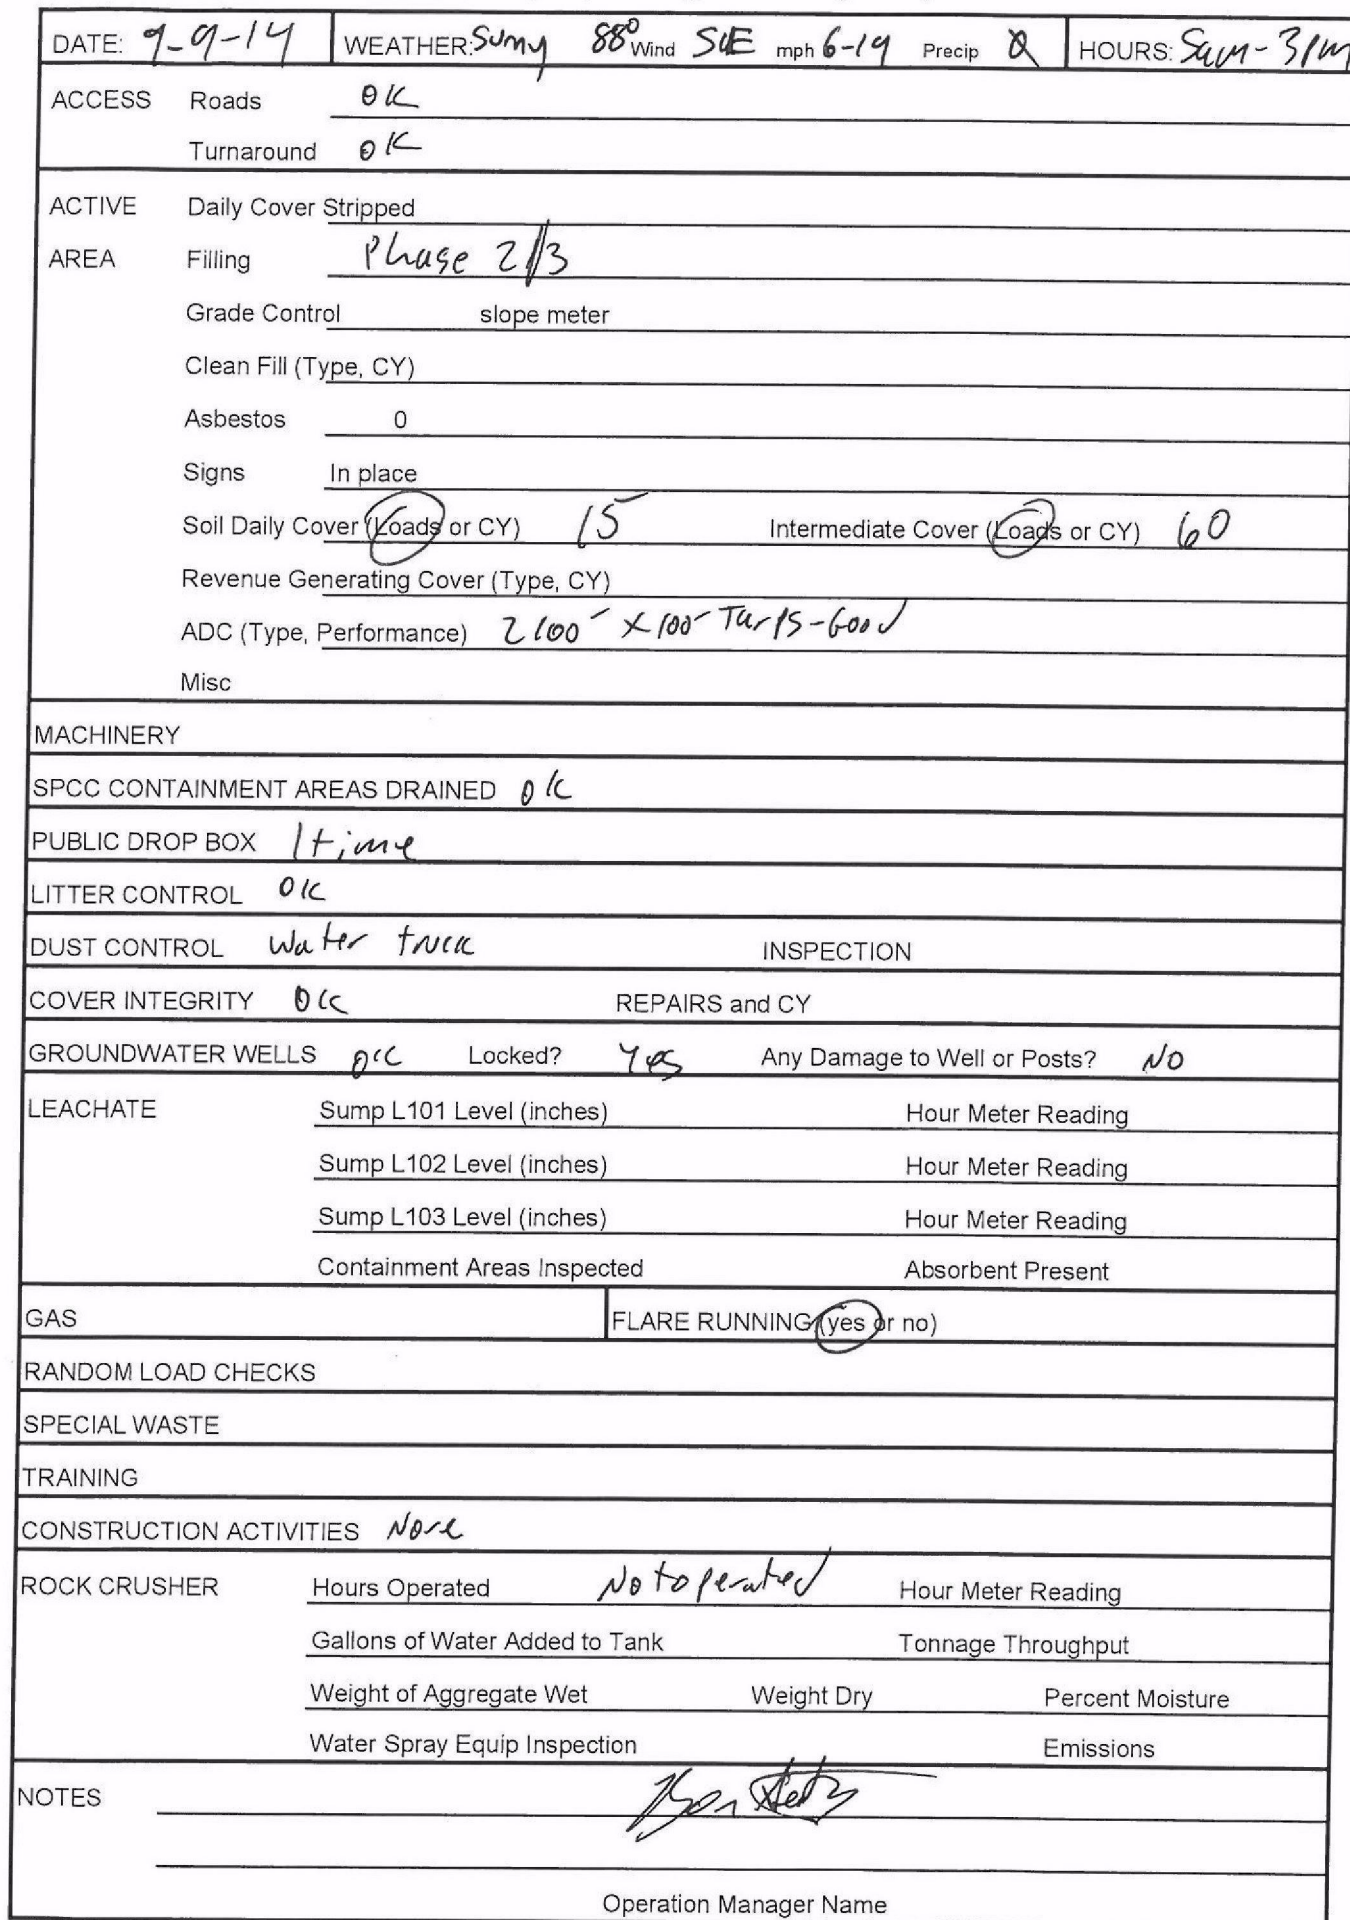 DATE: 9-9-14 WEATHER: Sunny 88° Wind mph 6-19 Precip HOURS: - 3pm
ACCESS Roads OK
Turnaround OK
ACTIVE Daily Cover Stripped
AREA Filling Phase 2/3
Grade Control slope meter
Clean Fill (Type, CY)
Asbestos 0
Signs In place
Soil Daily Cover (Loads or CY) 15 Intermediate Cover (Loads or CY) 60
Revenue Generating Cover (Type, CY)
ADC (Type, Performance) 2 100' x 100' Tarps - Good
Misc
MACHINERY
SPCC CONTAINMENT AREAS DRAINED OK
PUBLIC DROP BOX 1 time
LITTER CONTROL OK
DUST CONTROL Water truck INSPECTION
COVER INTEGRITY OK REPAIRS and CY
GROUNDWATER WELLS OK Locked? Yes Any Damage to Well or Posts? NO
LEACHATE Sump L101 Level (inches) Hour Meter Reading
Sump L102 Level (inches) Hour Meter Reading
Sump L103 Level (inches) Hour Meter Reading
Containment Areas Inspected Absorbent Present
GAS FLARE RUNNING (yes or no)
RANDOM LOAD CHECKS
SPECIAL WASTE
TRAINING
CONSTRUCTION ACTIVITIES None
ROCK CRUSHER Hours Operated Not operated Hour Meter Reading
Gallons of Water Added to Tank Tonnage Throughput
Weight of Aggregate Wet Weight Dry Percent Moisture
Water Spray Equip Inspection Emissions
NOTES
Operation Manager Name